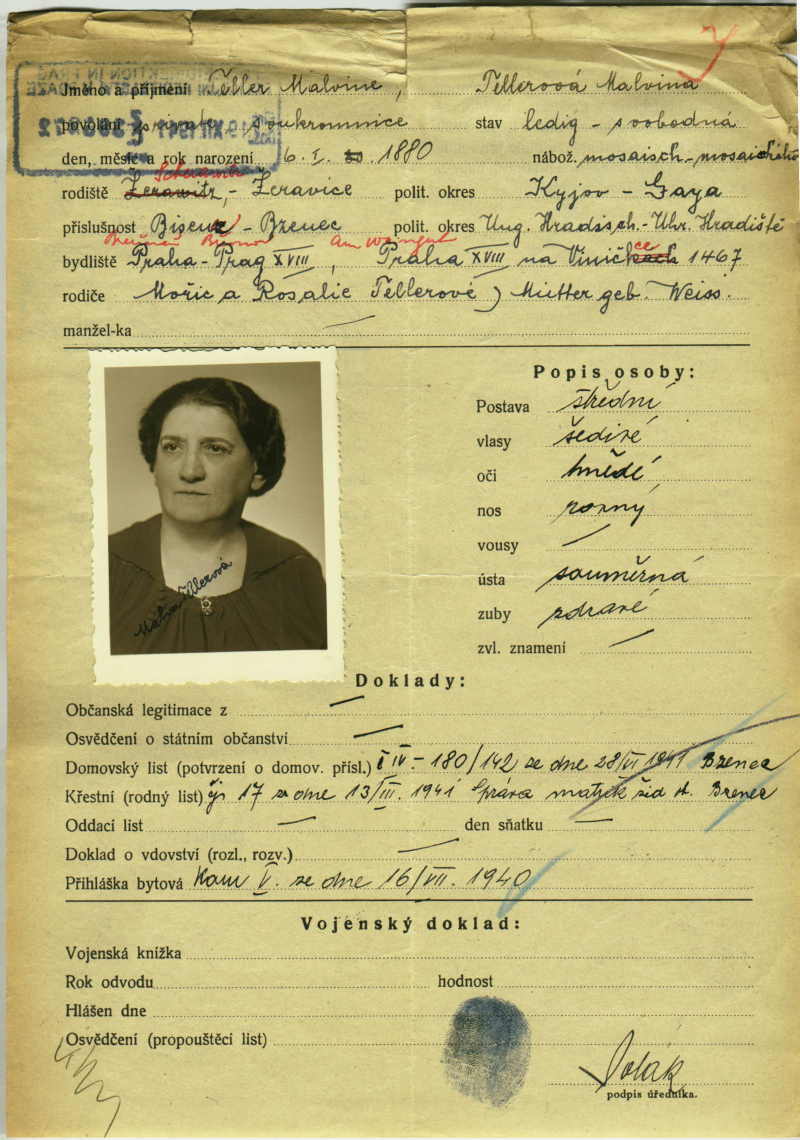 Jméno a příjmení Teller Malvine, Tellerová Malvina
povolání private, soukromnice stav ledig - svobodná
den, měsíc a rok narození 6. I. 1880 nábož. mosaisch - mosaického
rodiště Žerawitz, - Žeravice polit. okres Kyjov - Gaya
příslušnost Bisenz - Bzenec polit. okres Ung. Hradisch. - Uhr. Hradiště
Am Weingut
bydliště Praha - Prag XVIII, Praha XVIII na Viničkách ce 1467
rodiče Mořic a Rosalie Tellerové) Mutter geb. Weiss.
manžel-ka —
Popis osoby:
Postava střední
vlasy šedivé
oči hnědé
nos rovný
vousy —
ústa souměrná
zuby zdravé
zvl. znamení —
Malva Tellerová
Doklady:
Občanská legitimace z —
Osvědčení o státním občanství —
Domovský list (potvrzení o domov. přísl.) IV - 180/142 ze dne 28/VI 1941 Bzenec
Křestní (rodný list) čj 17 ze dne 13/III. 1941 Správa matrik žid. Bzenec
Oddací list — den sňatku —
Doklad o vdovství (rozl., rozv.) —
Přihláška bytová Kom V. ze dne 16/VII. 1940
Vojenský doklad:
Vojenská knížka
Rok odvodu hodnost
Hlášen dne
Osvědčení (propouštěcí list)
Polák
podpis úředníka.